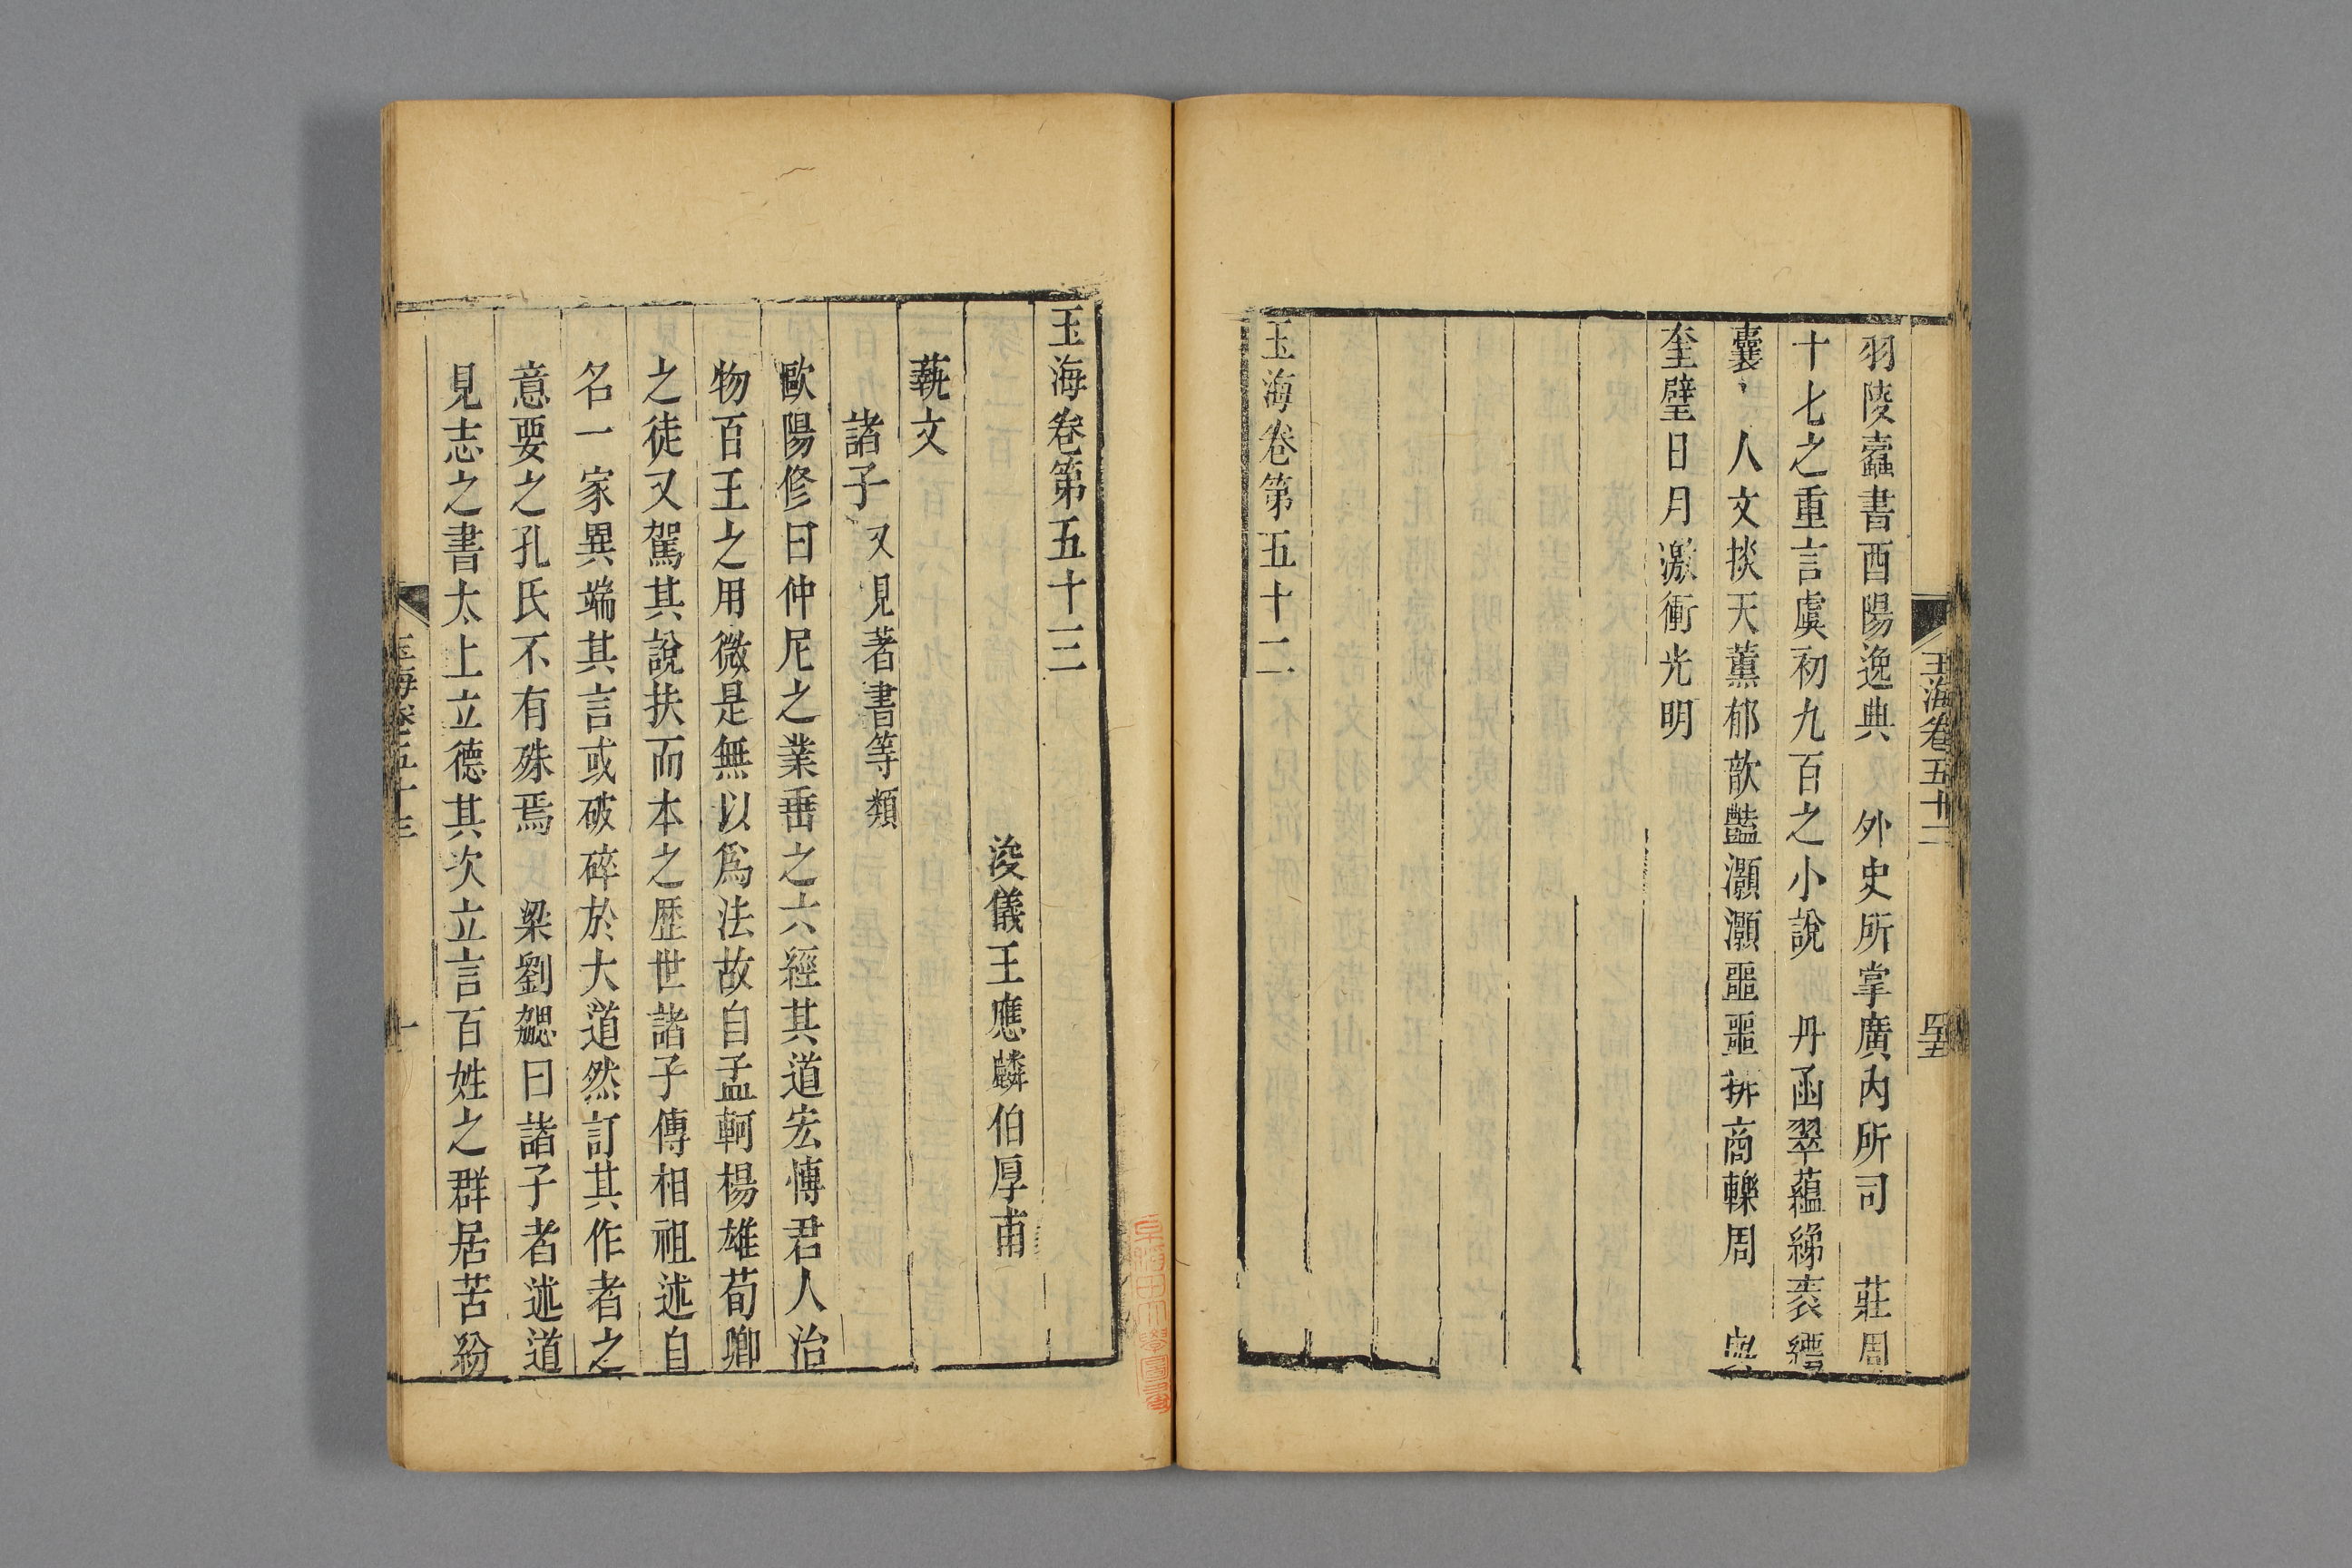 玉海卷五十二 四十五
羽陵蠹書酉陽逸典 外史所掌廣內所司 莊周
十七之重言虞初九百之小說 丹函翠蘊綈袠縹
囊 人文掞天薰郁歆豔灝灝噩噩排商轢周
奎璧日月激衝光明
玉海卷第五十二
玉海卷第五十三
浚儀王應麟伯厚甫
蓺文
諸子 又見著書等類
歐陽修曰仲尼之業垂之六經其道宏博君人治
物百王之用微是無以爲法故自孟軻楊雄荀卿
之徒又駕其說扶而本之歷世諸子傳相祖述自
名一家異端其言或破碎於大道然訂其作者之
意要之孔氏不有殊焉 梁劉勰曰諸子者述道
見志之書太上立德其次立言百姓之群居苦紛
玉海卷五十三 一